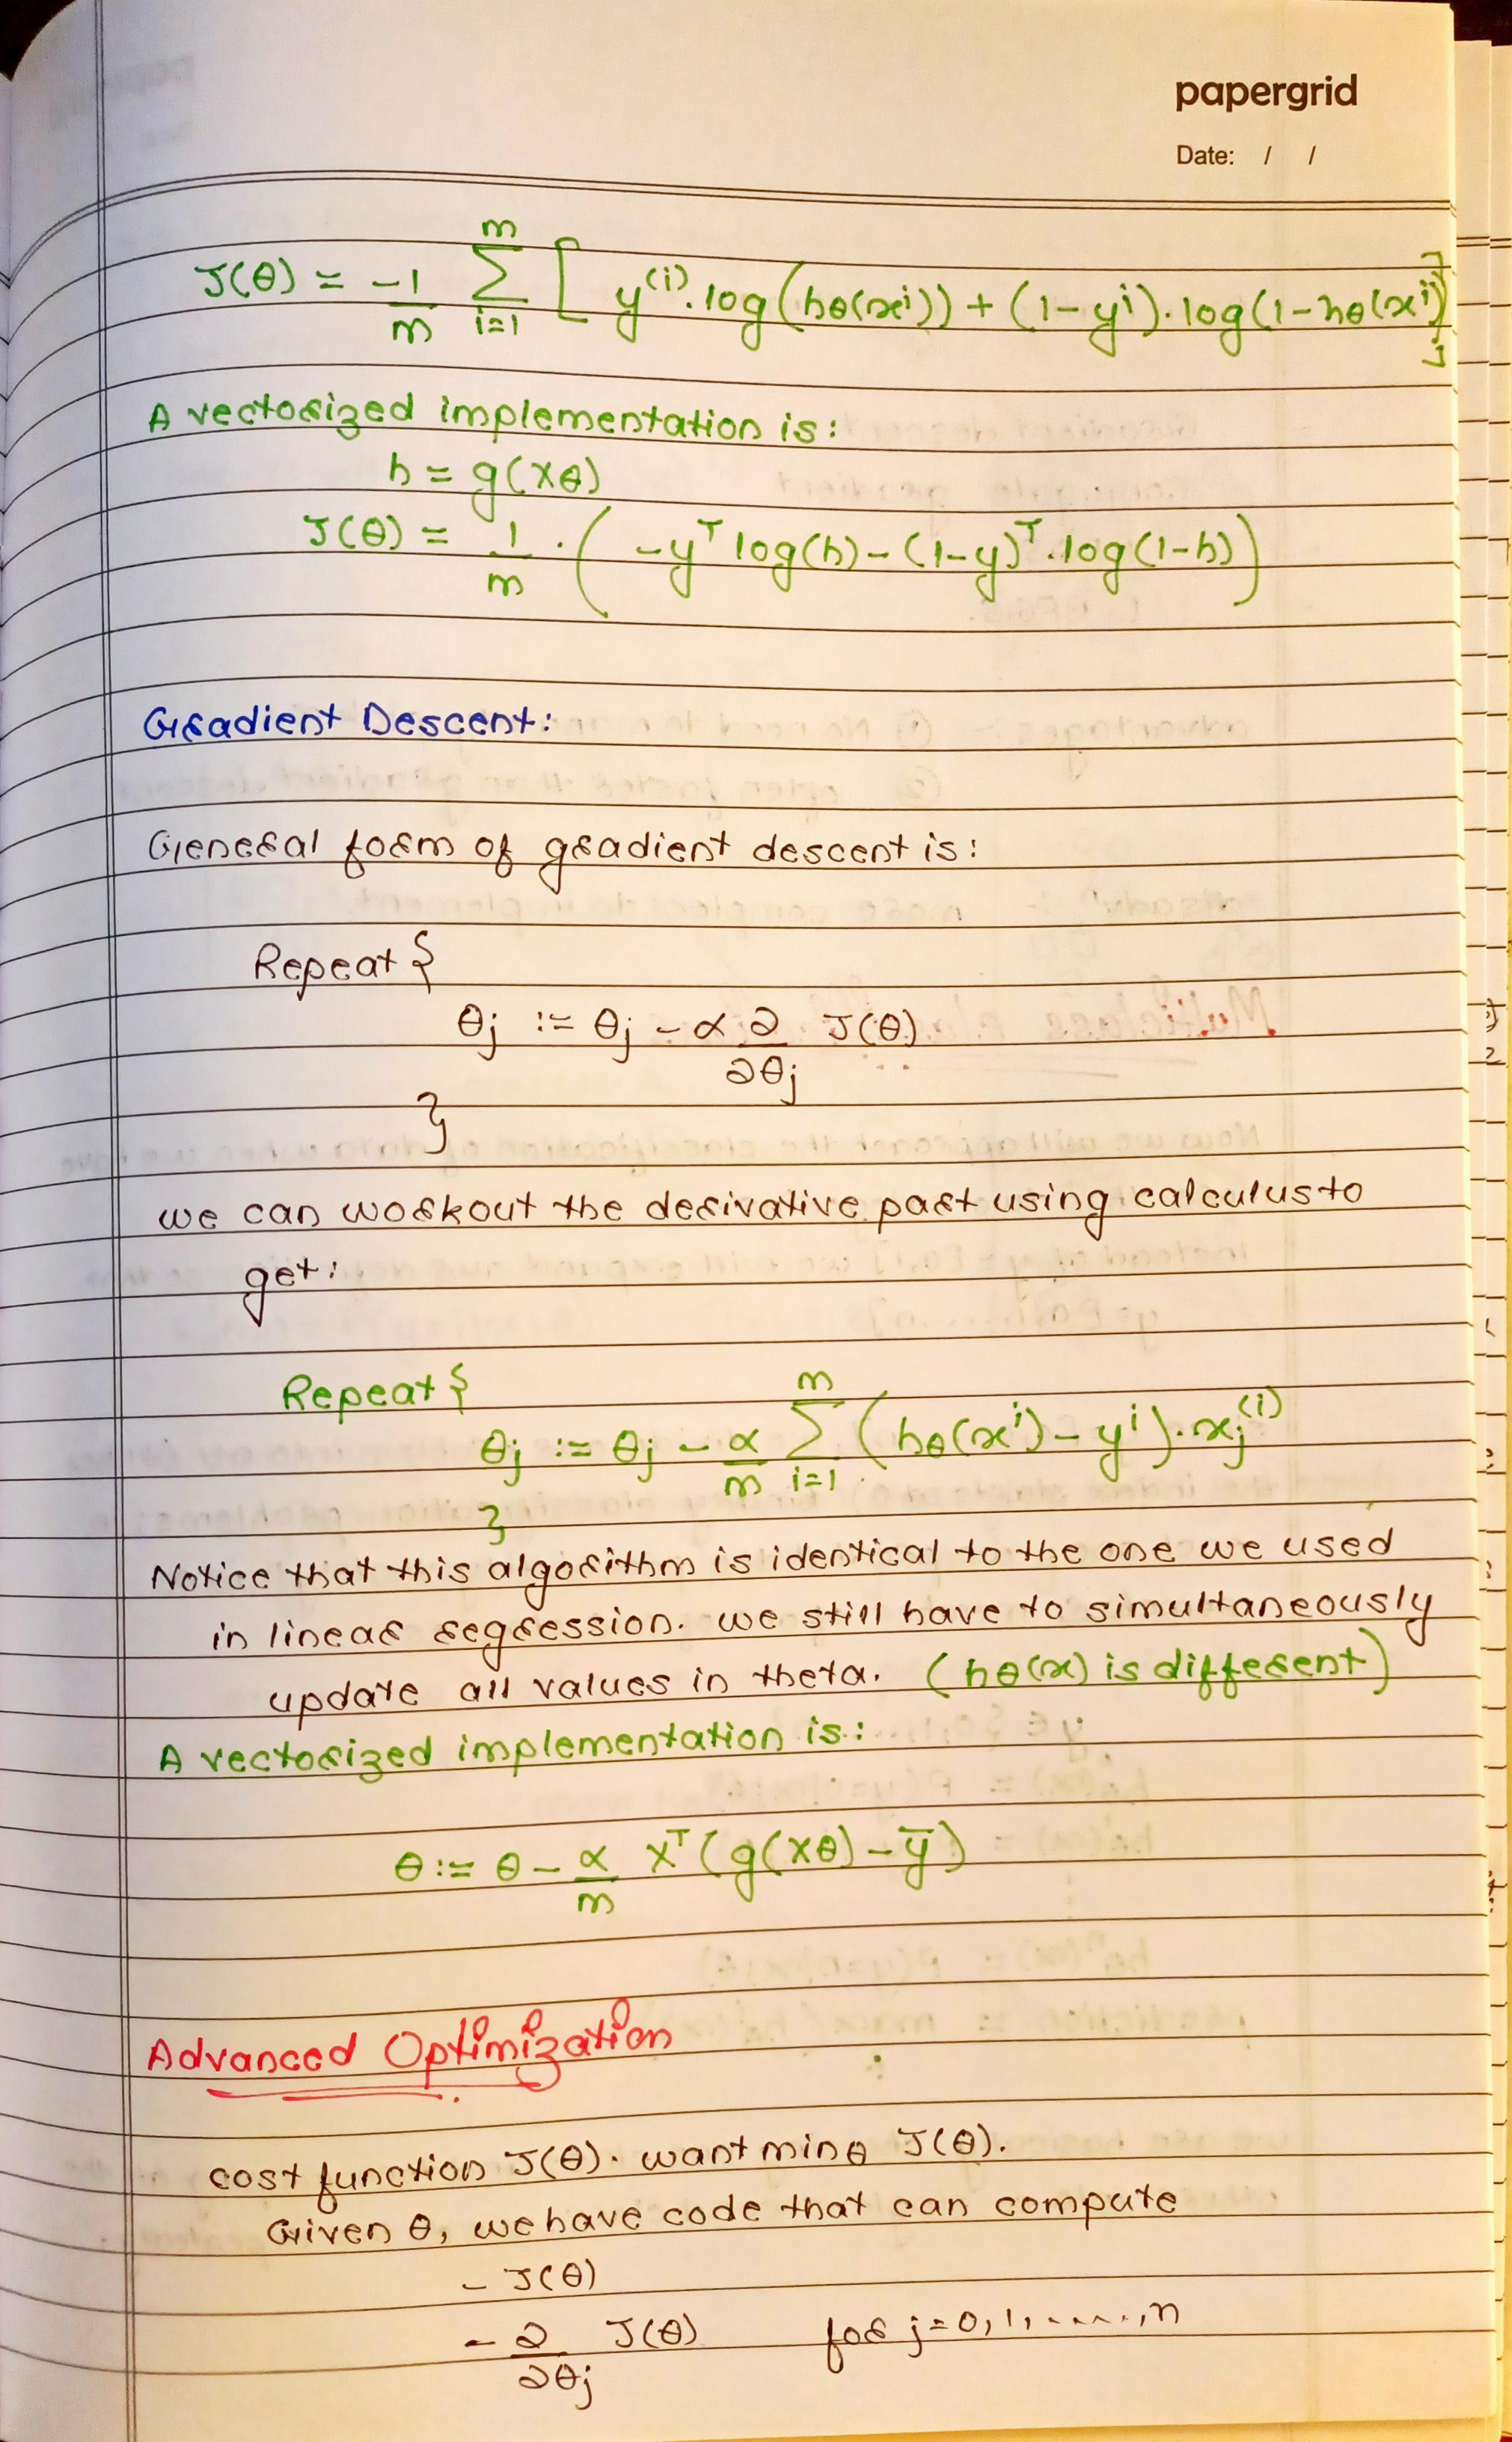 papergrid
Date: / /
J(θ) = -1/m Σ_{i=1}^{m} [ y^(i) . log(hθ(x^i)) + (1 - y^i) . log(1 - hθ(x^i)) ]
A vectorized implementation is:
h = g(xθ)
J(θ) = 1/m . ( -y^T log(h) - (1-y)^T . log(1-h) )
Gradient Descent:
General form of gradient descent is:
Repeat {
θj := θj - α ∂/∂θj J(θ)
}
we can workout the derivative part using calculus to
get:
Repeat {
θj := θj - α/m Σ_{i=1}^{m} (hθ(x^i) - y^i) . xj^(i)
}
Notice that this algorithm is identical to the one we used
in linear regression. we still have to simultaneously
update all values in theta. (hθ(x) is different)
A vectorized implementation is:
θ := θ - α/m x^T (g(xθ) - y̅)
Advanced Optimization
cost function J(θ). want minθ J(θ).
Given θ, we have code that can compute
- J(θ)
- ∂/∂θj J(θ) for j = 0, 1, ....., n